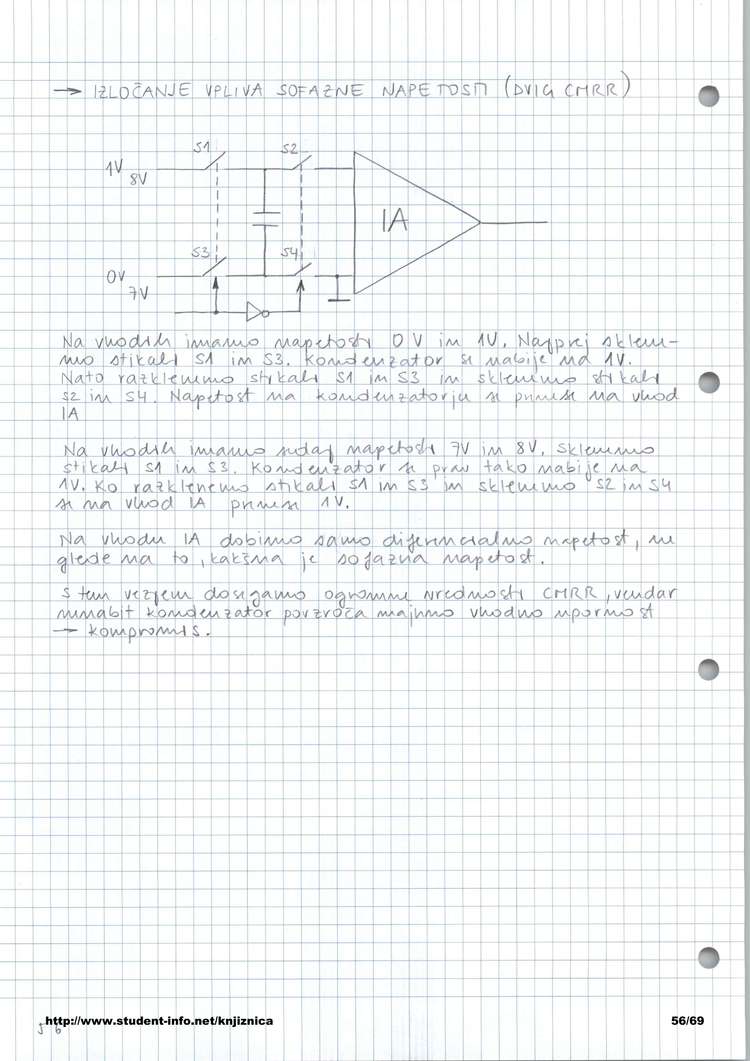 → IZLOČANJE VPLIVA SOFAZNE NAPETOSTI (DVIG CMRR)
S1
S2
1V
8V
IA
S3
S4
0V
7V
Na vhodih imamo napetosti 0V in 1V. Najprej skleni-
mo stikali S1 in S3. Kondenzator se nabije na 1V.
Nato razklenimo stikali S1 in S3 in sklenimo stikali
S2 in S4. Napetost na kondenzatorju se prinese na vhod
IA
Na vhodih imamo sedaj napetosti 7V in 8V. Sklenimo
stikali S1 in S3. Kondenzator se prav tako nabije na
1V. Ko razklenemo stikali S1 in S3 in sklenimo S2 in S4
se na vhod IA prinese 1V.
Na vhodu IA dobimo samo diferencialno napetost, ne
glede na to, kakšna je sofazna napetost.
S tem vezjem dosegamo ogromne vrednosti CMRR, vendar
nenabit kondenzator povzroča majhno vhodno upornost
→ kompromis.
http://www.student-info.net/knjiznica
56/69